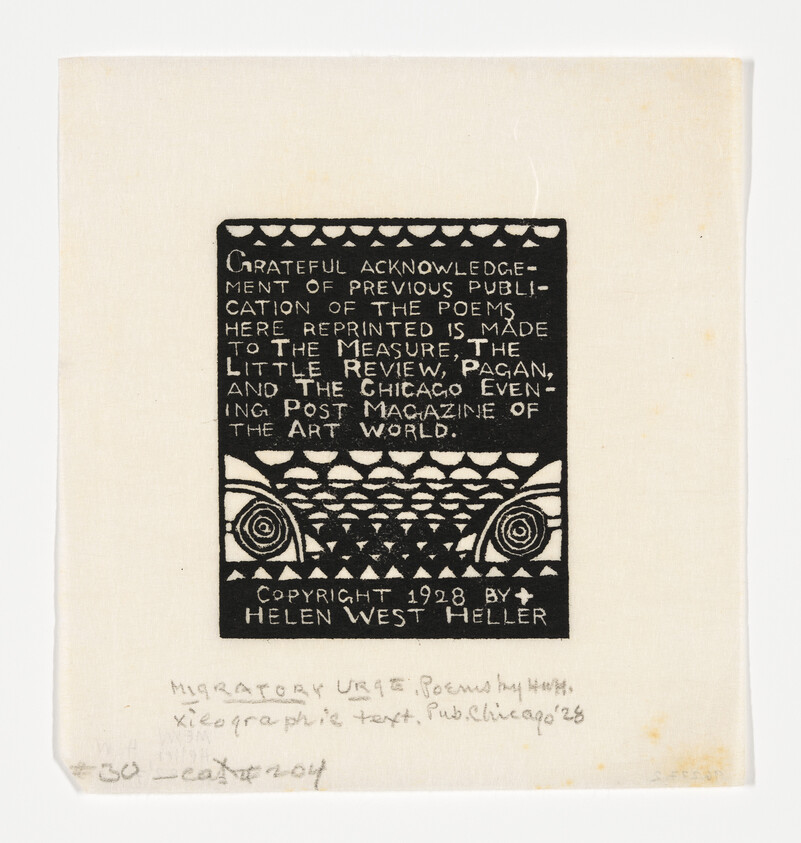 GRATEFUL ACKNOWLEDGE-
MENT OF PREVIOUS PUBLI-
CATION OF THE POEMS
HERE REPRINTED IS MADE
TO THE MEASURE, THE
LITTLE REVIEW, PAGAN,
AND THE CHICAGO EVEN-
ING POST MAGAZINE OF
THE ART WORLD.
COPYRIGHT 1928 BY +
HELEN WEST HELLER
MIGRATORY URGE. Poems by HWH.
xilographic text. Pub. Chicago '28
#30 - cat # 204